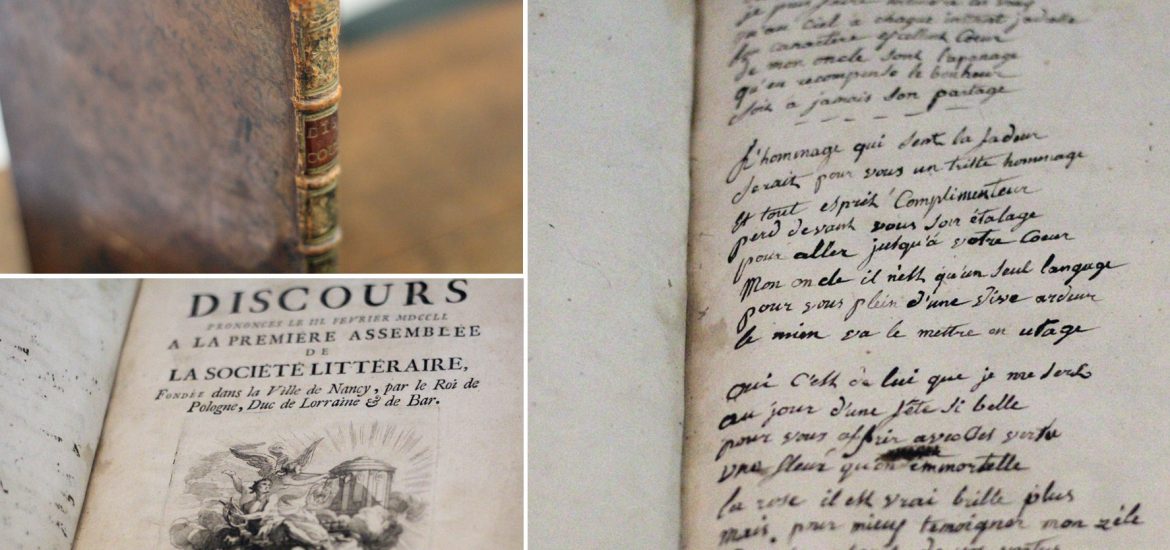 DISCOURS
PRONONCES LE III. FEVRIER MDCCLI.
A LA PREMIÈRE ASSEMBLÉE
DE
LA SOCIÉTÉ LITTÉRAIRE,
FONDÉE dans la Ville de Nancy, par le Roi de
Pologne, Duc de Lorraine & de Bar.
qu'au Ciel à chaque instant
caractère excellent Coeur
de mon oncle sont l'apanage
qu'en recompense le bonheur
soit à jamais son partage
L'hommage qui sent la fadeur
serait pour vous un triste hommage
Et tout esprit Complimenteur
perd devant vous son étalage
pour aller jusqu'à votre Coeur
Mon oncle il n'est qu'un seul langage
pour vous plein d'une vive ardeur
le mien va le mettre en usage
oui C'est de lui que je me sers
au jour d'une fête si belle
pour vous offrir avec
une fleur qu'on immortelle
la rose il est vrai brille plus
mais pour mieux temoigner mon zéle